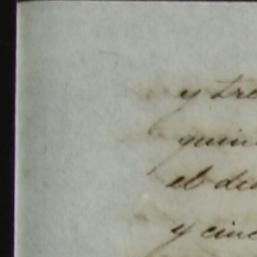 y tre
quin
el du
y cinc